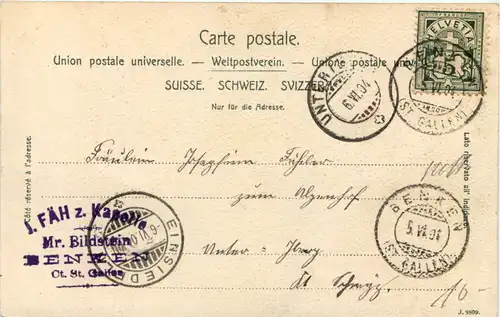 Carte postale.
Union postale universelle. — Weltpostverein. — Unione postale universale
SUISSE. SCHWEIZ. SVIZZERA.
Nur für die Adresse.
HELVETIA
5
BENKEN
5. VI. 04
(ST. GALLEN)
6. VI. 04
Côté réservé à l'adresse.
Lato riservato all'indirizzo.
Fräulein Josephina
zum
Unter-Iberg
Kt Schwyz
J. FÄH z. 
Mr. Bildstein
BENKEN
Ct. St. Gallen
EINSIEDELN
BENKEN
5. VI. 04
(ST. GALLEN)
J. 9809.